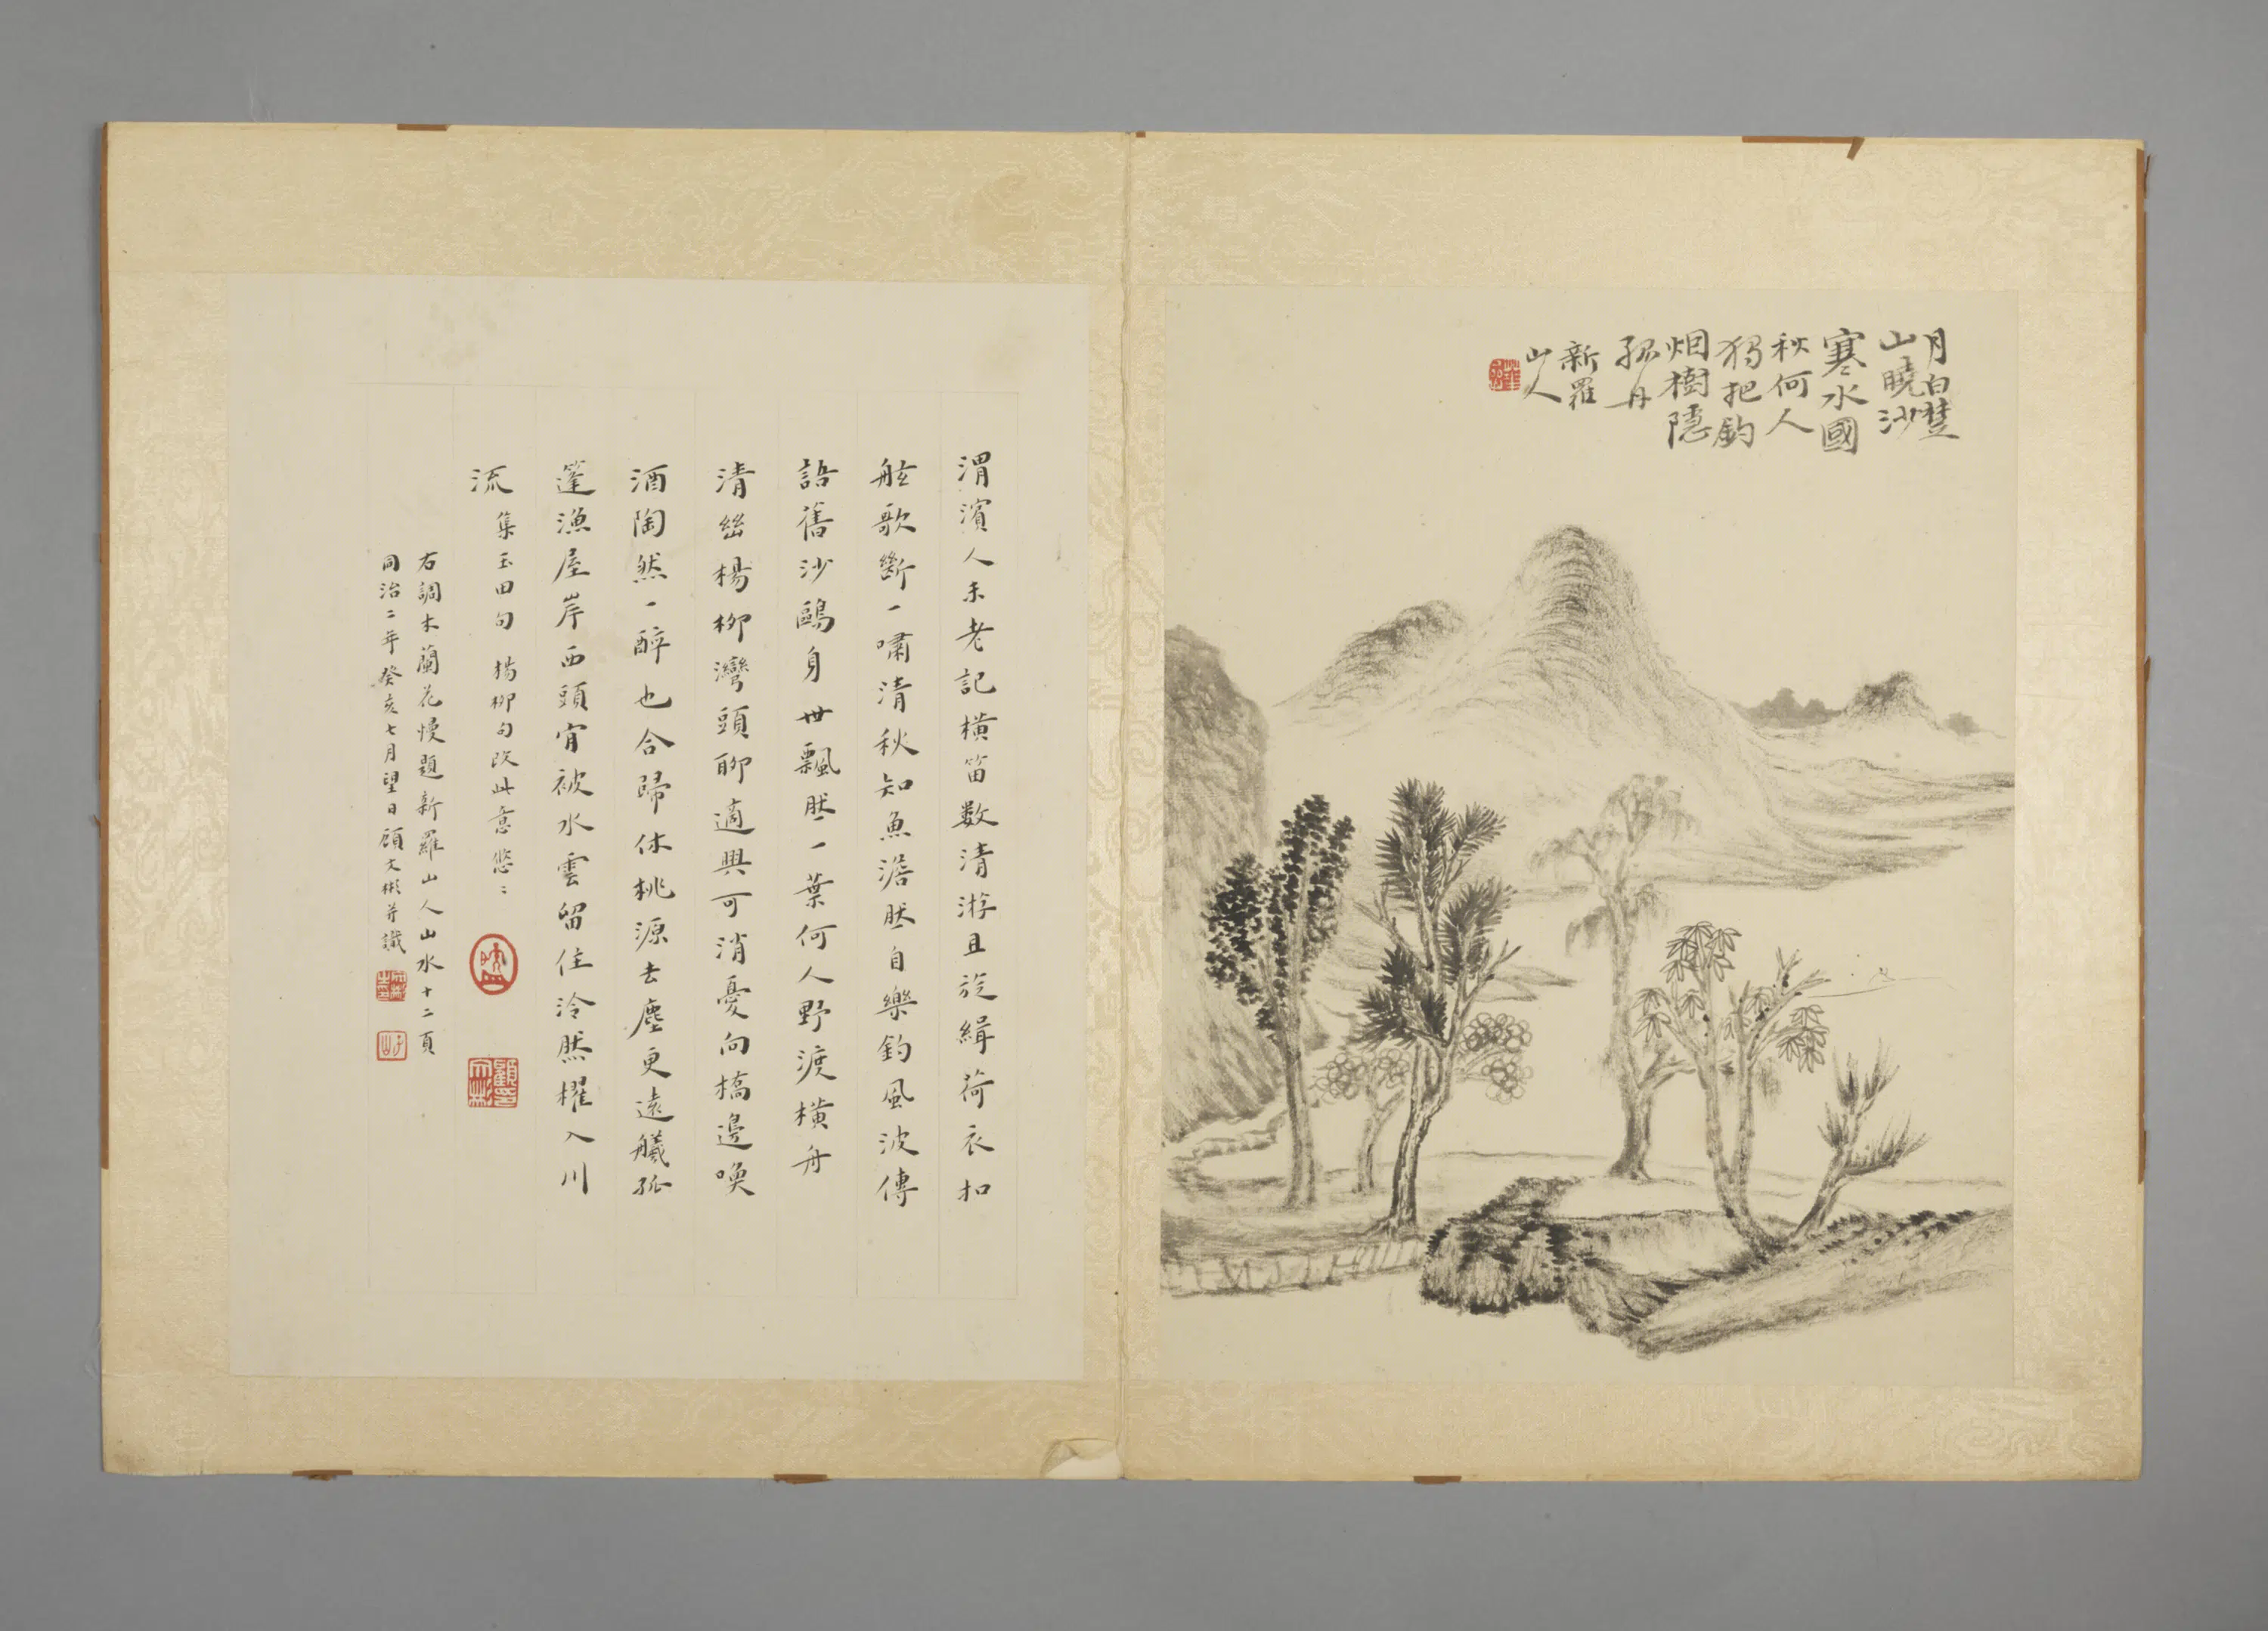 月白楚
山曉沙
寒水國
秋何人
獨把釣
烟樹隱
孤舟
新羅
山人
渭濱人未老記橫笛数清游且旋緝荷衣扣
舷歌斷一嘯清秋知魚澹然自樂釣風波傳
語舊沙鷗身世飄然一葉何人野渡橫舟
清幽楊柳灣頭聊適興可消憂向橋邊喚
酒陶然一醉也合歸休桃源去塵更遠艤孤
篷漁屋岸西頭甯被水雲留住泠然櫂入川
流
集玉田句 楊柳句改此意悠〻
右調木蘭花慢題新羅山人山水十二頁
同治二年癸亥七月望日顧文彬并識
顧印文彬